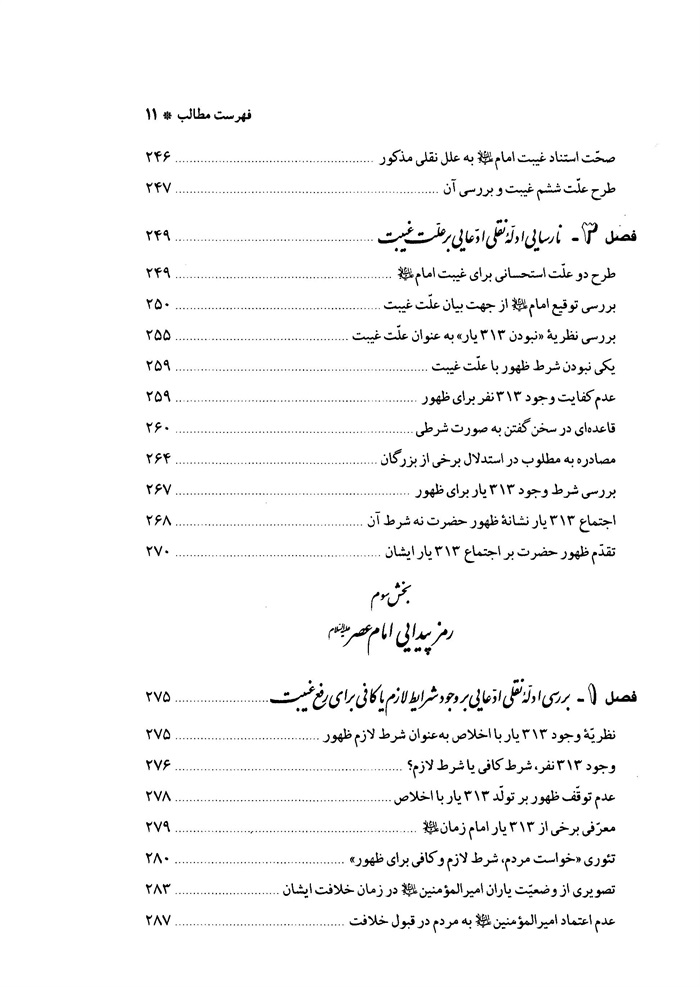 فهرست مطالب * ۱۱
صحّت استناد غیبت امام علیه السلام به علل نقلی مذکور ........ ۲۴۶
طرح علّت ششم غیبت و بررسی آن ........ ۲۴۷
فصل ۳ - نارسایی ادلّهٔ نقلی ادّعایی بر علّت غیبت ........ ۲۴۹
طرح دو علّت استحسانی برای غیبت امام علیه السلام ........ ۲۴۹
بررسی توقیع امام علیه السلام از جهت بیان علّت غیبت ........ ۲۵۰
بررسی نظریهٔ «نبودن ۳۱۳ یار» به عنوان علّت غیبت ........ ۲۵۵
یکی نبودن شرط ظهور با علّت غیبت ........ ۲۵۹
عدم کفایت وجود ۳۱۳ نفر برای ظهور ........ ۲۵۹
قاعده‌ای در سخن گفتن به صورت شرطی ........ ۲۶۰
مصادره به مطلوب در استدلال برخی از بزرگان ........ ۲۶۴
بررسی شرط وجود ۳۱۳ یار برای ظهور ........ ۲۶۷
اجتماع ۳۱۳ یار نشانهٔ ظهور حضرت نه شرط آن ........ ۲۶۸
تقدّم ظهور حضرت بر اجتماع ۳۱۳ یار ایشان ........ ۲۷۰
بخش سوم
رمز پیدایی امام عصر علیه السلام
فصل ۱ - بررسی ادلّهٔ نقلی ادّعایی بر وجود شرایط لازم یا کافی برای رفع غیبت ........ ۲۷۵
نظریّهٔ وجود ۳۱۳ یار با اخلاص به‌عنوان شرط لازم ظهور ........ ۲۷۵
وجود ۳۱۳ نفر، شرط کافی یا شرط لازم؟ ........ ۲۷۶
عدم توقّف ظهور بر تولّد ۳۱۳ یار با اخلاص ........ ۲۷۸
معرّفی برخی از ۳۱۳ یار امام زمان علیه السلام ........ ۲۷۹
تئوری «خواست مردم، شرط لازم و کافی برای ظهور» ........ ۲۸۰
تصویری از وضعیّت یاران امیرالمؤمنین علیه السلام در زمان خلافت ایشان ........ ۲۸۳
عدم اعتماد امیرالمؤمنین علیه السلام به مردم در قبول خلافت ........ ۲۸۷